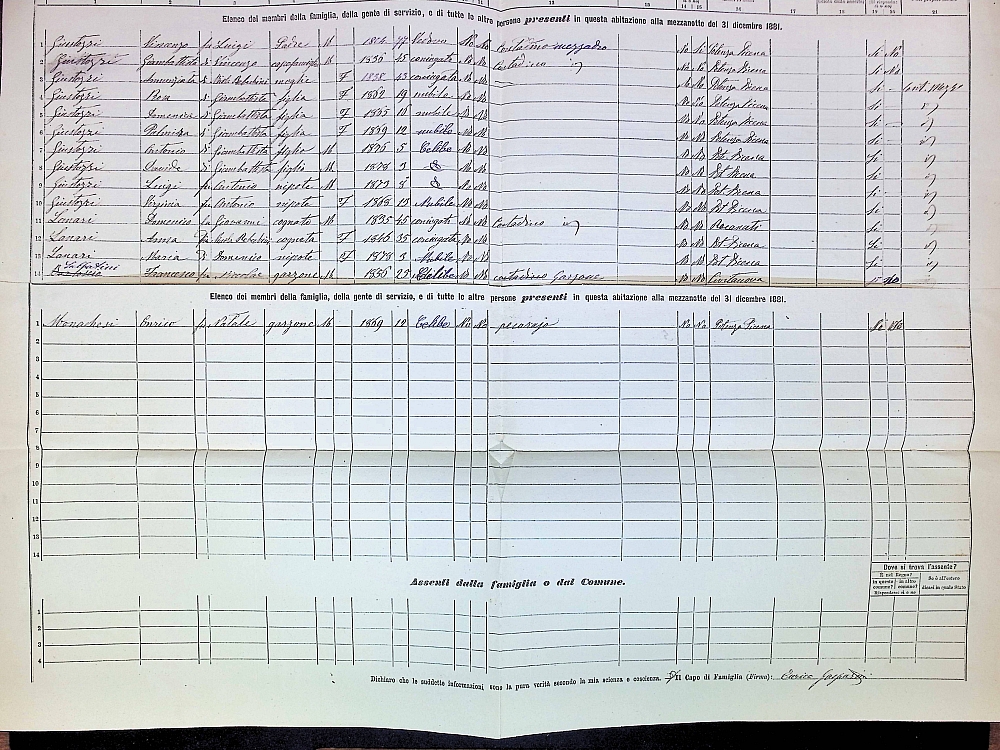 Elenco dei membri della famiglia, della gente di servizio, e di tutte le altre persone presenti in questa abitazione alla mezzanotte del 31 dicembre 1881.
1 Giustozzi Vincenzo fu Luigi Padre M 1804 77 Vedovo No No Contadino mezzadro No Si Potenza Picena Si No
2 Giustozzi Giambattista di Vincenzo capofamiglia M 1836 45 coniugato No No Contadino No No Potenza Picena Si No
3 Giustozzi Annunziata di moglie F 1838 43 coniugata No No No No Potenza Picena Si
4 Giustozzi Rosa di Giambattista figlia F 1862 19 nubile No No No No Potenza Picena Si
5 Giustozzi Domenica di Giambattista figlia F 1865 16 nubile No No No No Potenza Picena Si
6 Giustozzi Palmira di Giambattista figlia F 1869 12 nubile No No No No Potenza Picena Si
7 Giustozzi Antonio di Giambattista figlio M 1876 5 Celibe No No No No Pot. Picena Si
8 Giustozzi Davide di Giambattista figlio M 1878 3 No No No No Pot. Picena Si
9 Giustozzi Luigi fu Antonio nipote M 1873 8 No No No No Pot. Picena Si
10 Giustozzi Virginia fu Antonio nipote F 1868 13 Nubile No No No No Pot. Picena Si
11 Lanari Domenico fu Giovanni cognato M 1835 45 coniugato No No Contadino No No Recanati Si
12 Lanari Anna cognata F 1846 35 coniugata No No No No Pot. Picena Si
13 Lanari Maria di Domenico nipote F 1878 3 Nubile No No No No Pot. Picena Si
14 Francesco fu Nicola garzone M 1856 25 Celibe No No contadino Garzone No No Civitanova No
Elenco dei membri della famiglia, della gente di servizio, e di tutte le altre persone presenti in questa abitazione alla mezzanotte del 31 dicembre 1881.
1 Monachesi Enrico fu Natale garzone M 1869 12 Celibe No No pecorajo No No Potenza Picena No No
2
3
4
5
6
7
8
9
10
11
12
13
14
Assenti dalla famiglia o dal Comune.
Dove si trova l'assente?
È nel Regno?
in questo comune? in altro comune?
Rispondersi sì o no
Se è all'estero dicasi in quale Stato
1
2
3
4
Dichiaro che le suddette informazioni sono la pura verità secondo la mia scienza e coscienza. Il Capo di Famiglia (Firma): Enrico